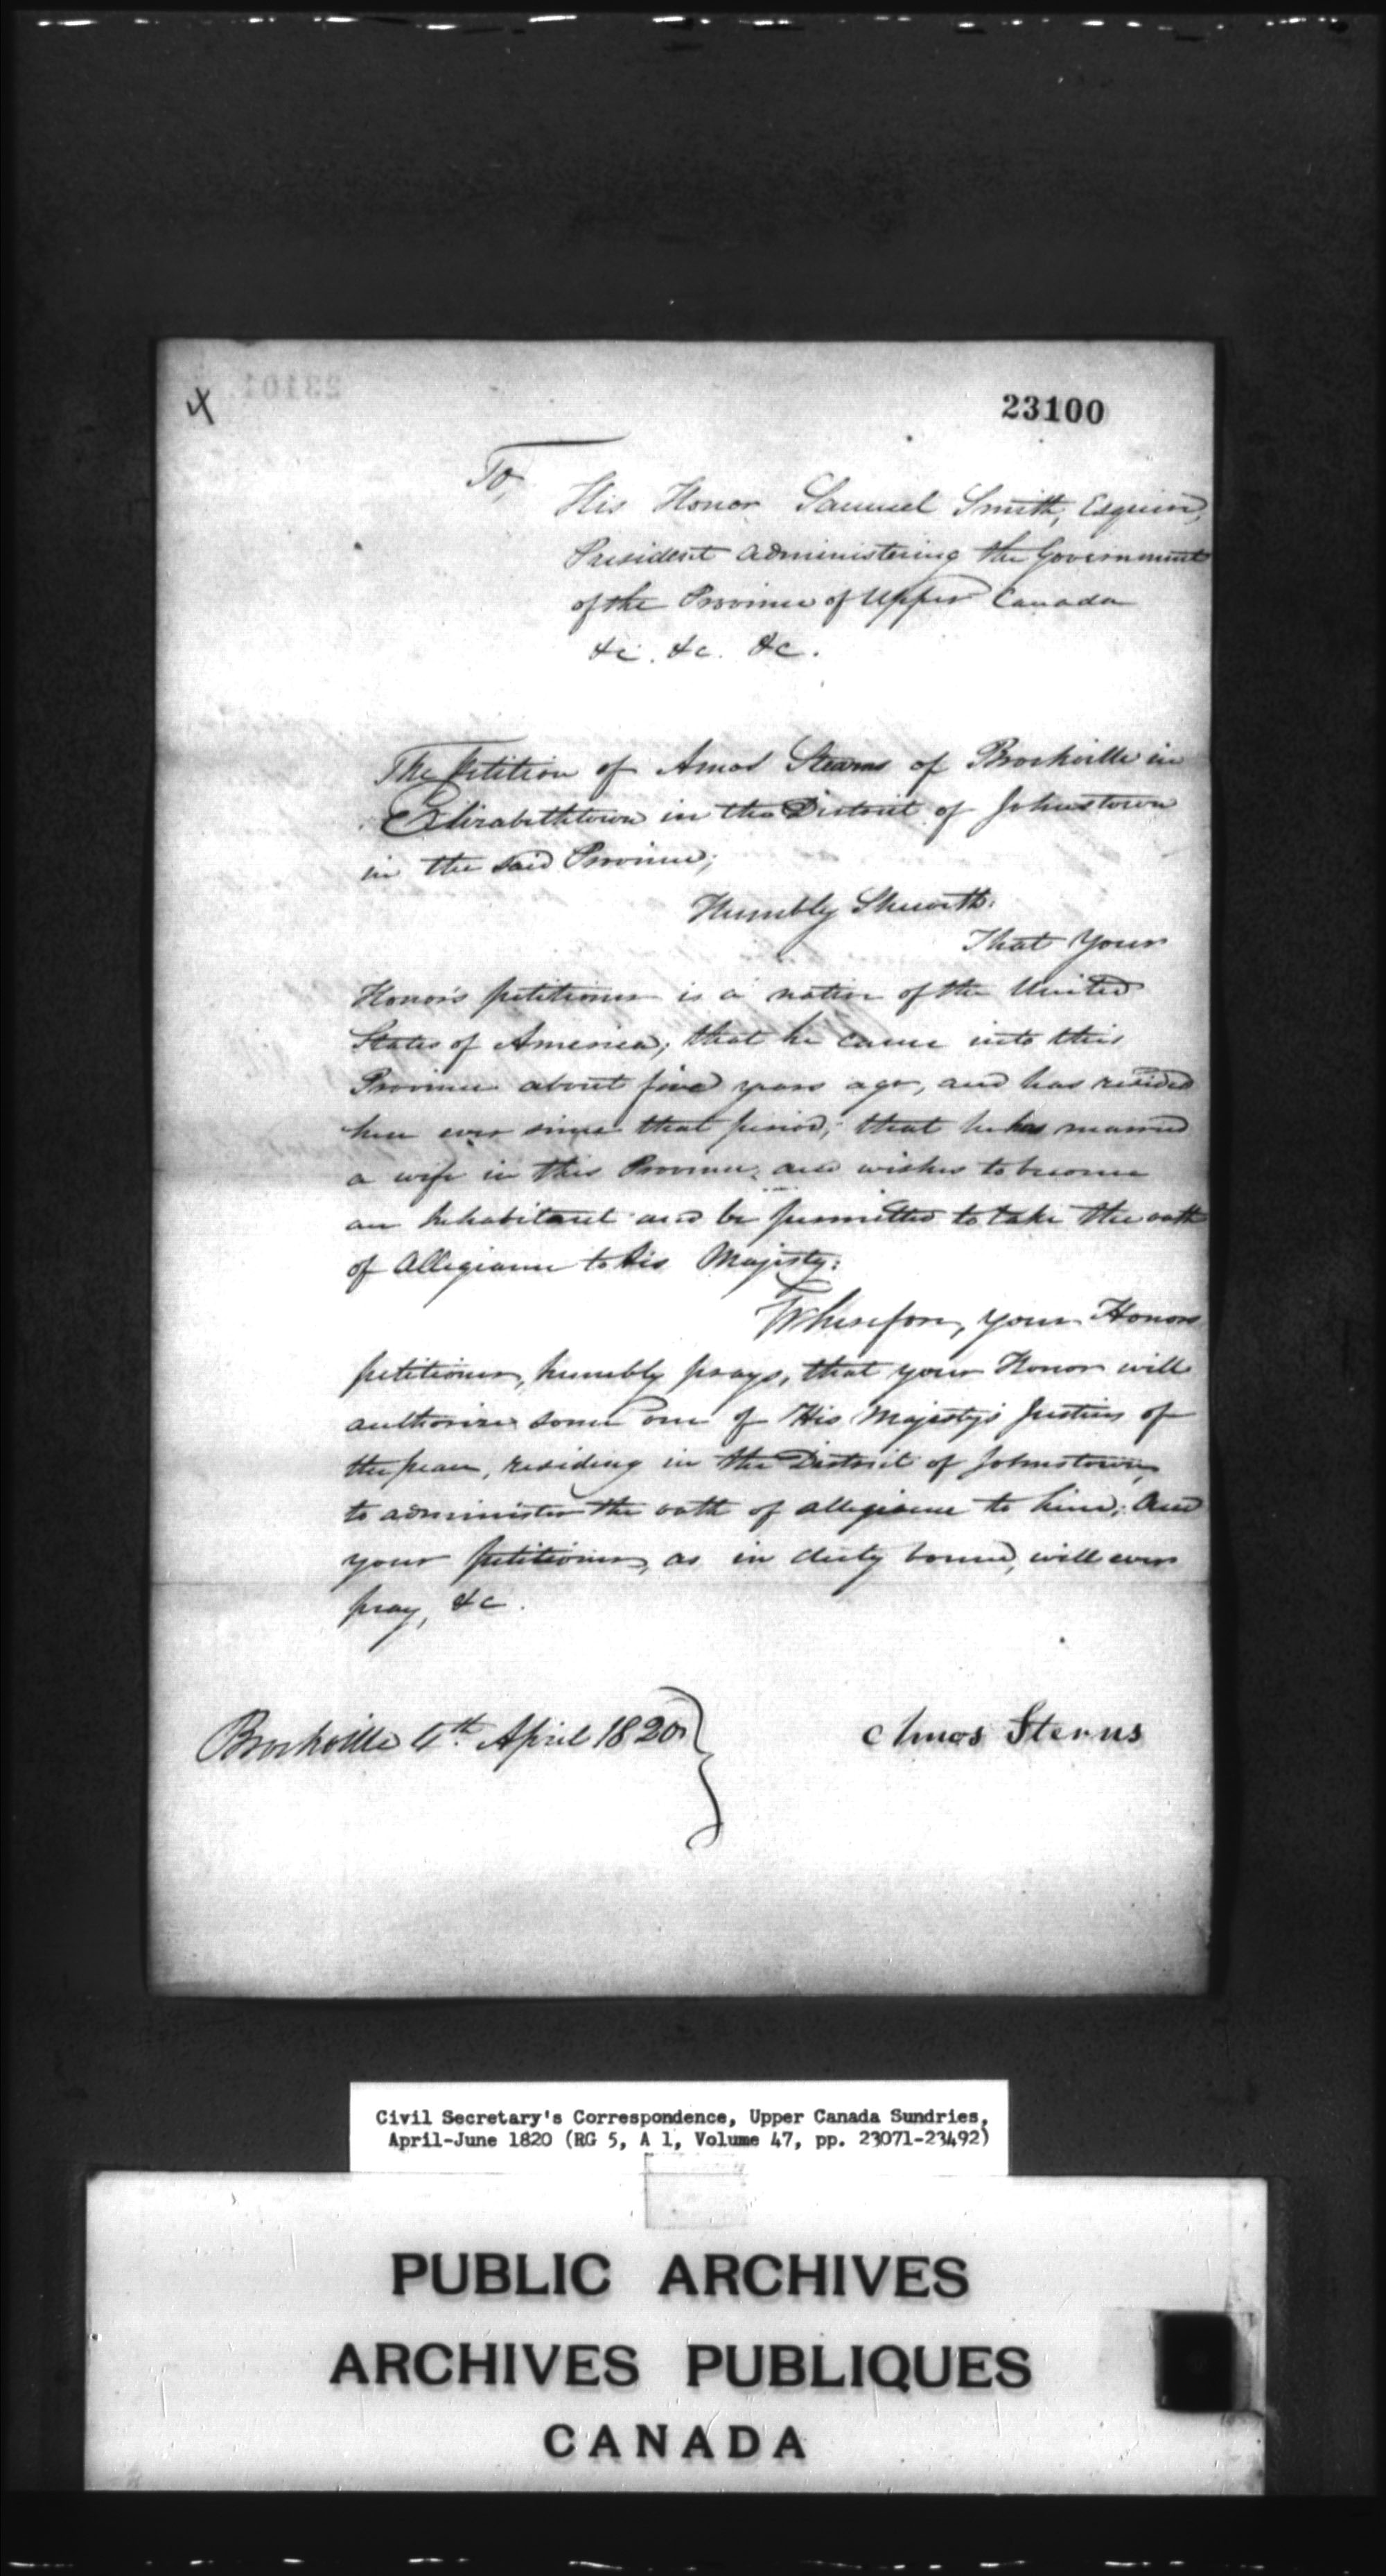 23100
To,
His Honor Samuel Smith, Esquire,
President administering the Government
of the Province of Upper Canada
&c. &c. &c.
The Petition of Amos Stearns of Brockville in
Elizabethtown in the District of Johnstown
in the said Province;
Humbly Sheweth:
That your
Honor's petitioner is a native of the United
States of America; that he came into this
Province about five years ago, and has resided
here ever since that period; that he has married
a wife in this Province, and wishes to become
an Inhabitant and be permitted to take the oath
of Allegiance to his Majesty:
Wherefore, your Honors
petitioner, humbly prays, that your Honor will
authorize some one of His Majesty's Justices of
the peace, residing in the District of Johnstown,
to administer the oath of allegiance to him; And
your petitioner, as in duty bound, will ever
pray, &c.
Brockville 4th April 1820
Amos Sterns
Civil Secretary's Correspondence, Upper Canada Sundries,
April-June 1820 (RG 5, A 1, Volume 47, pp. 23071-23492)
PUBLIC ARCHIVES
ARCHIVES PUBLIQUES
CANADA